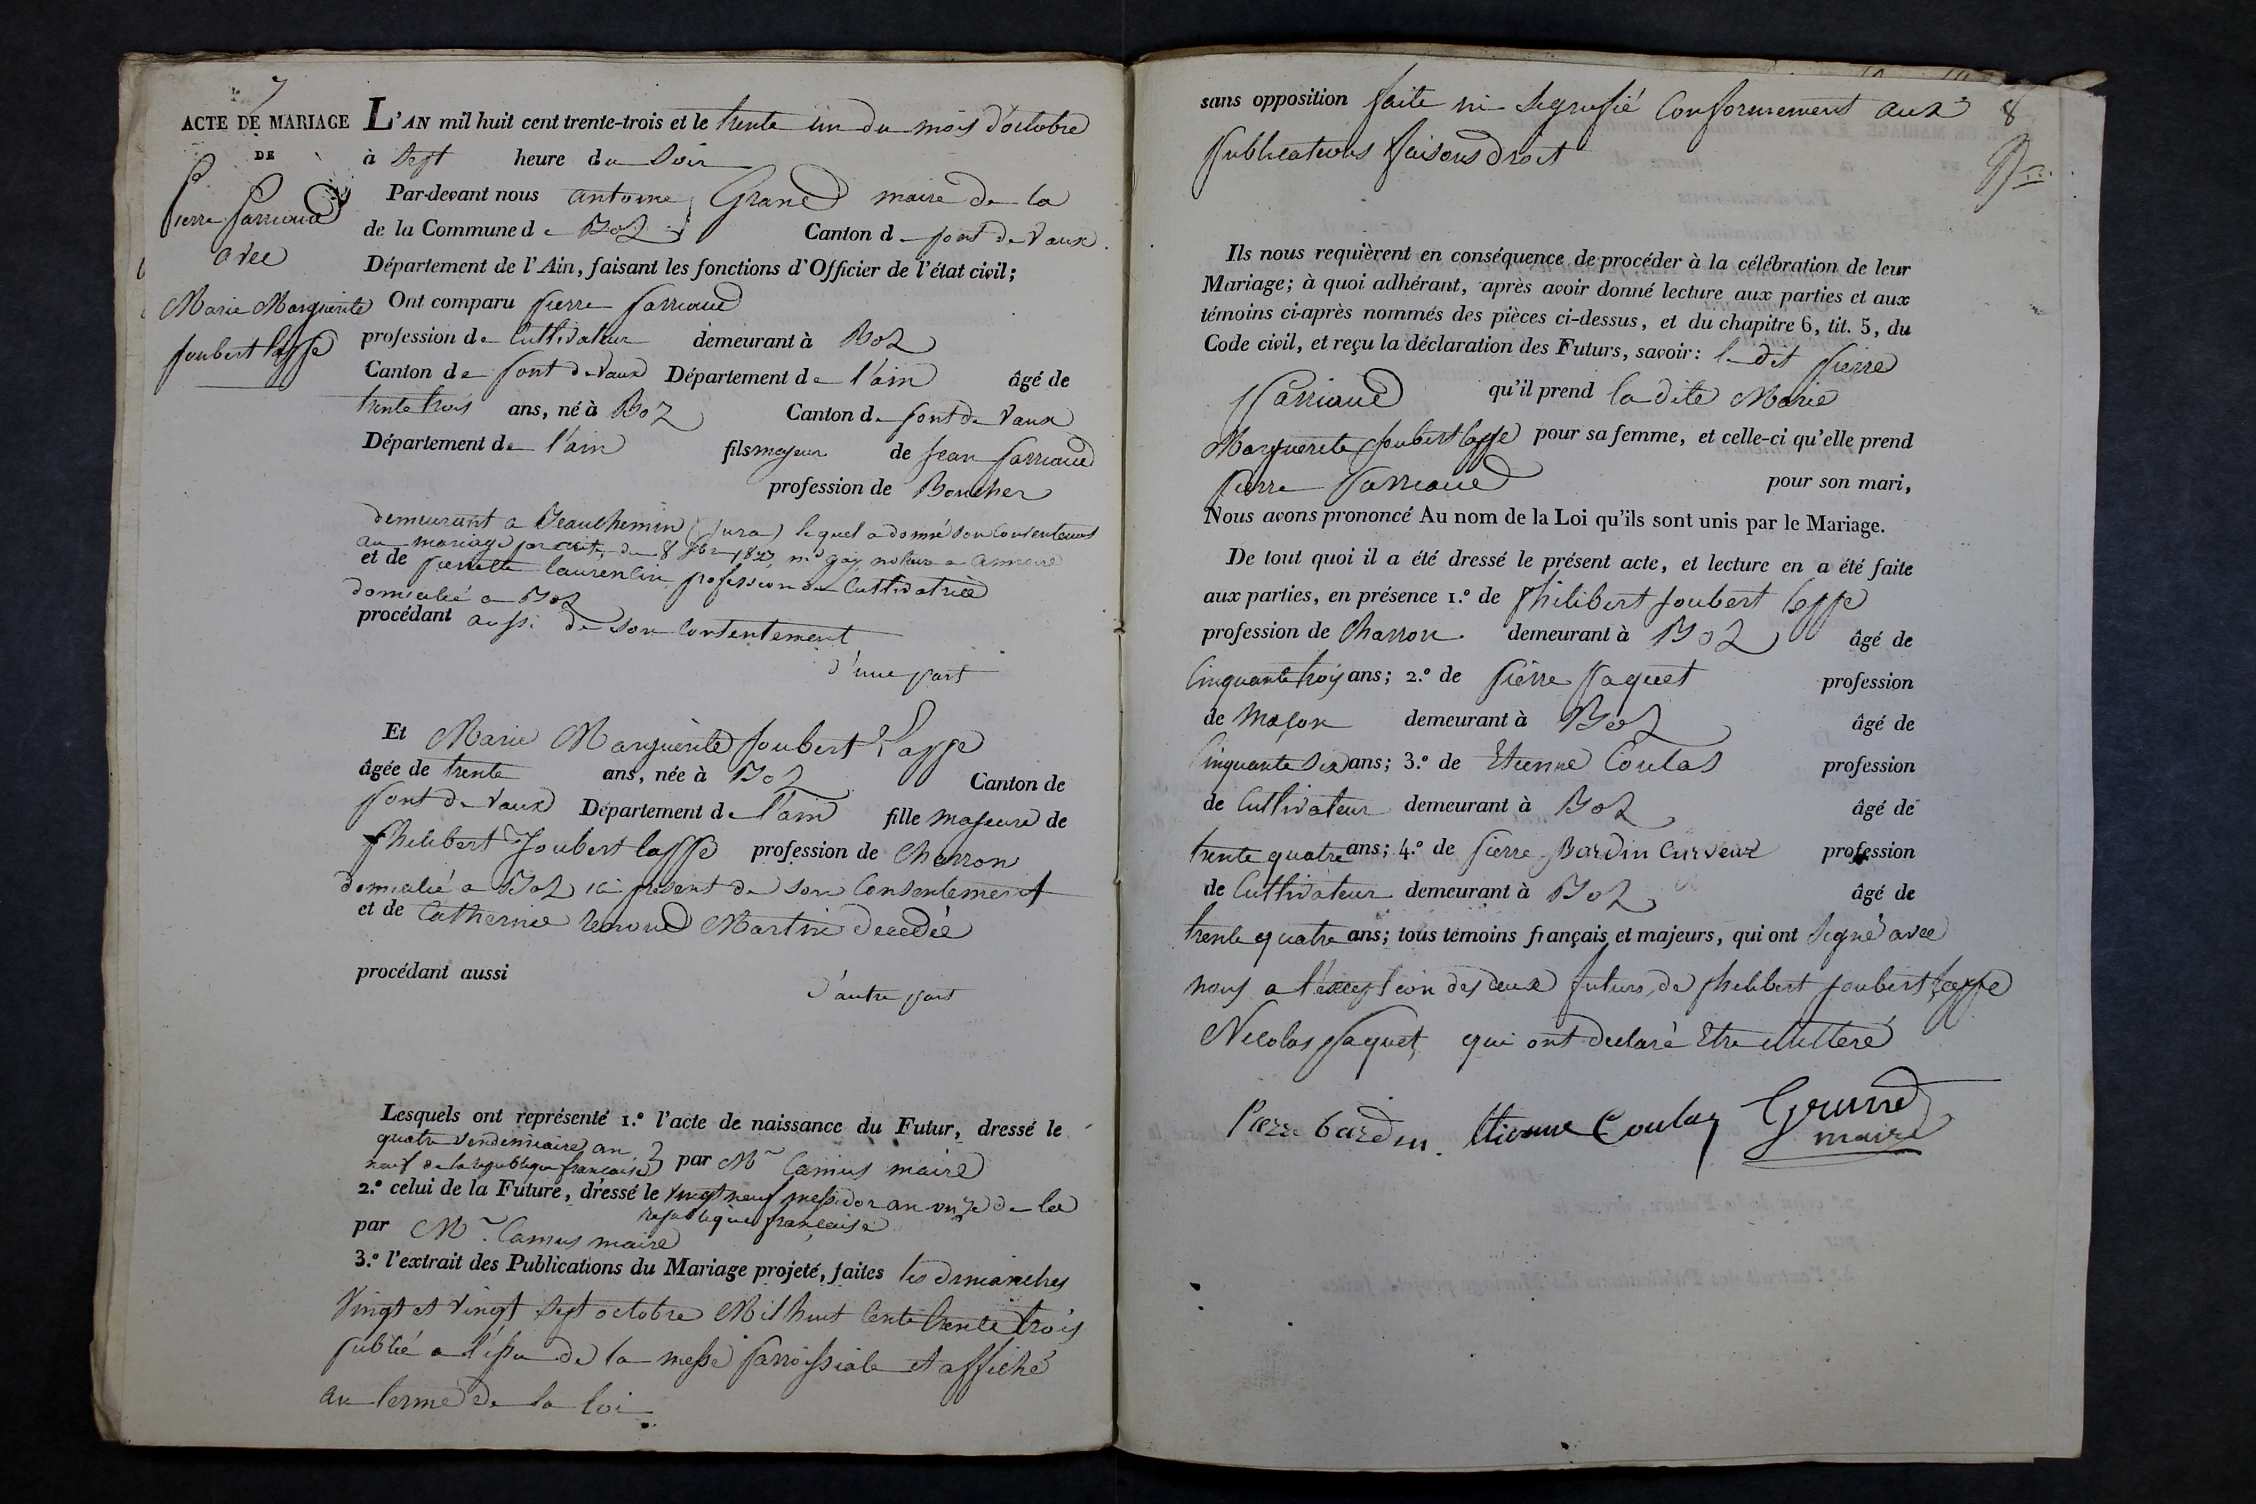 7
ACTE DE MARIAGE
DE
Pierre Parriaud
avec
Marie Marguerite
Joubert laffe
L'AN mil huit cent trente-trois et le trente un du mois d'octobre
à Sept heure du Soir
Par-devant nous antoine Grand maire de la
de la Commune de Boz Canton de pont de Vaux
Département de l'Ain, faisant les fonctions d'Officier de l'état civil;
Ont comparu pierre parriaud
profession de Cultivateur demeurant à Boz
Canton de pont de Vaux Département de l'ain âgé de
trente trois ans, né à Boz Canton de pont de Vaux
Département de l'ain fils majeur de Jean parriaud
profession de Boucher
demeurant a Beauchemin (Jura) lequel a donné son Consentement
au mariage par acte du 8 1833 me gay notaire a annoire
et de pierrette laurencin profession de Cultivatrice
domicilié a Boz
procédant aussi de son Consentement
d'une part
Et Marie Marguerite Joubert Laffe
âgée de trente ans, née à Boz Canton de
pont de Vaux Département de l'ain fille majeure de
philibert Joubert laffe profession de Charron
domicilié a Boz ici présent de son Consentement
et de Catherine renoud Martin décedée
procédant aussi
d'autre part
Lesquels ont représenté 1.º l'acte de naissance du Futur, dressé le
quatre vendemiaire an
neuf de la republique francaise par Mr Camus maire
2.º celui de la Future, dressé le vingt neuf messidor an onze de la
republique francaise
par Mr. Camus maire
3.º l'extrait des Publications du Mariage projeté, faites les dimanches
Vingt et vingt sept octobre Mil huit Cent trente trois
publié a l'issu de la messe parroissiale et affiché
au terme de la loi
sans opposition faite ni Segnifié Conformement aux
publications faisons droit
8
Ils nous requièrent en conséquence de procéder à la célébration de leur
Mariage; à quoi adhérant, après avoir donné lecture aux parties et aux
témoins ci-après nommés des pièces ci-dessus, et du chapitre 6, tit. 5, du
Code civil, et reçu la déclaration des Futurs, savoir: le dit pierre
Parriaud qu'il prend la dite Marie
Marguerite Joubert laffe pour sa femme, et celle-ci qu'elle prend
pierre Parriaud pour son mari,
Nous avons prononcé Au nom de la Loi qu'ils sont unis par le Mariage.
De tout quoi il a été dressé le présent acte, et lecture en a été faite
aux parties, en présence 1.º de philibert Joubert laffe
profession de Charron demeurant à Boz âgé de
Cinquante trois ans; 2.º de pierre paquet profession
de Maçon demeurant à Boz âgé de
Cinquante Six ans; 3.º de Etienne Coulas profession
de Cultivateur demeurant à Boz âgé de
trente quatre ans; 4.º de pierre Bardin Curveur profession
de Cultivateur demeurant à Boz âgé de
trente quatre ans; tous témoins français et majeurs, qui ont Segné avec
nous a l'éxception des deux futurs, de philibert Joubert laffe
Nicolas paquet, qui ont declaré Etre illitere
Pierre bardin. Etienne Coulas Grand
maire